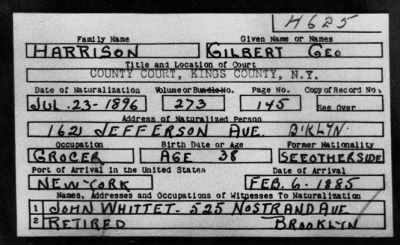 H625
Family Name Given Name or Names
HARRISON GILBERT GEO
Title and Location of Court
COUNTY COURT, KINGS COUNTY, N.Y.
Date of Naturalization Volume or Bundle No. Page No. Copy of Record No.
JUL. 23-1896 273 145 See Over
Address of Naturalized Person
1621 JEFFERSON AVE. B'KLYN.
Occupation Birth Date or Age Former Nationality
GROCER AGE 38 SEE OTHER SIDE
Port of Arrival in the United States Date of Arrival
NEW YORK FEB. 6-1885
Names, Addresses and Occupations of Witnesses To Naturalization
1 JOHN WHITTET- 525 NOSTRAND AVE
2 RETIRED BROOKLYN